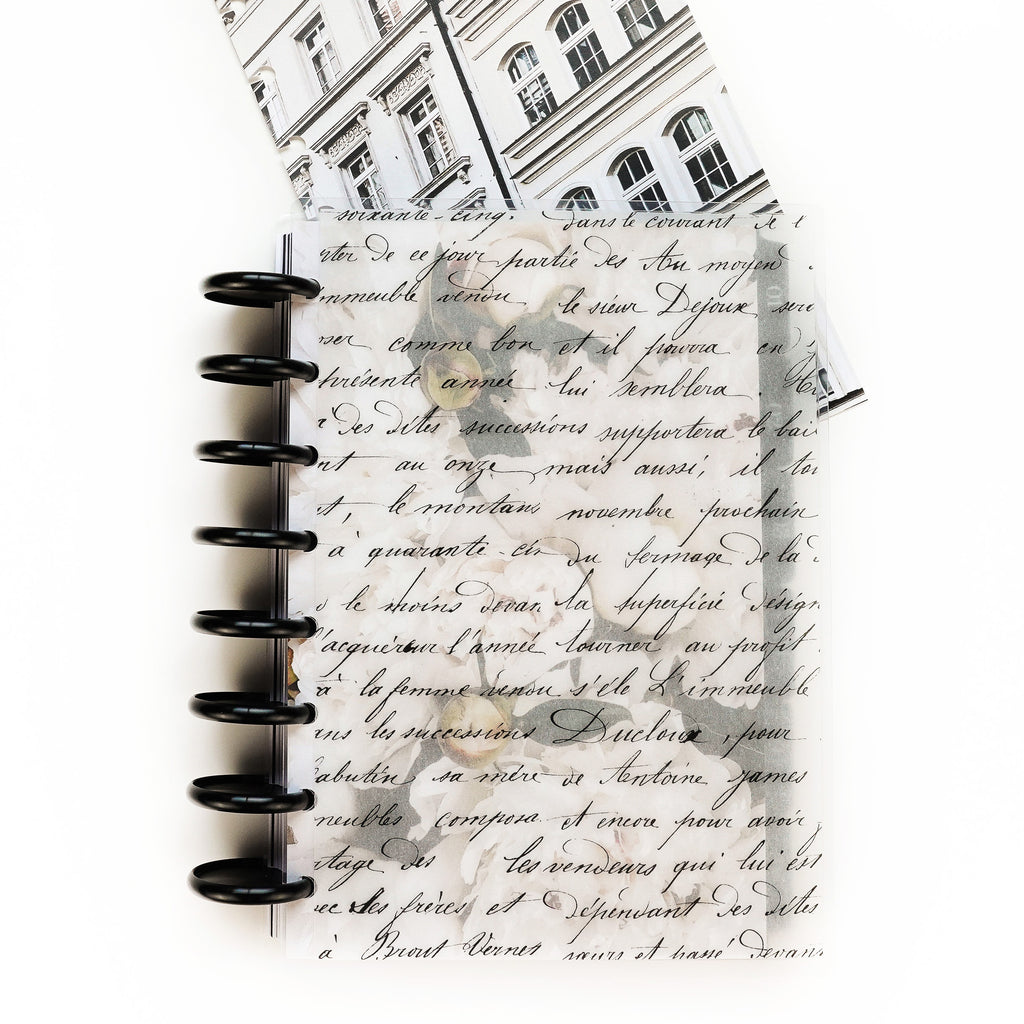 soixante-cinq. dans le courant
de ce jour partie des Au moyen
immeuble vendu le sieur Dejoux sera
comme bon et il pourra en
présente année lui semblera.
des dites successions supportera le bail
au onze mais aussi, il
le montans novembre prochain
à quarante-cin du fermage de la
le moins devan la superficie désign
l'acquéreur l'année tourner au profit
à la femme vendu s'éle L'immeuble
les successions Ducloux, pour
sa mère de Antoine James
meubles composa et encore pour avoir
des les vendeurs qui lui
les frères et dépendant des dites
à Brout Vernet et passé devans